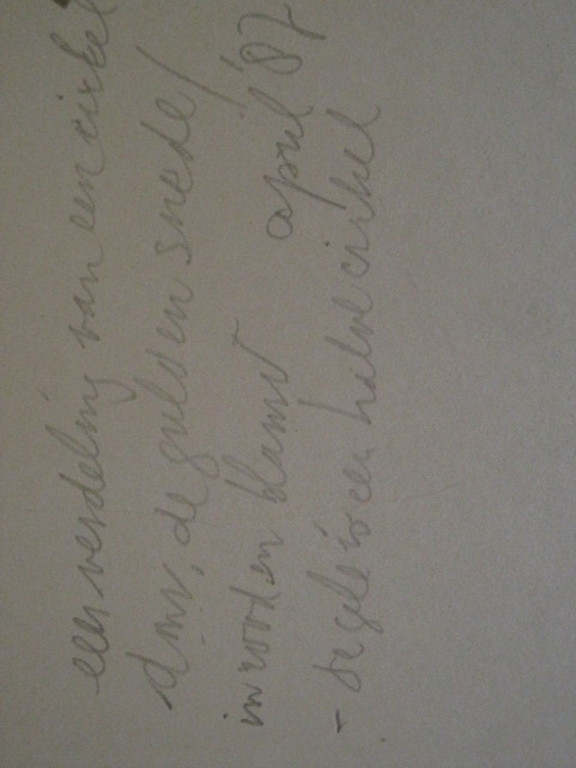 een verdeling van een cirkel
d.m.v. de gulden snede/
in rood en blauw april '87
- de gele is een halve cirkel